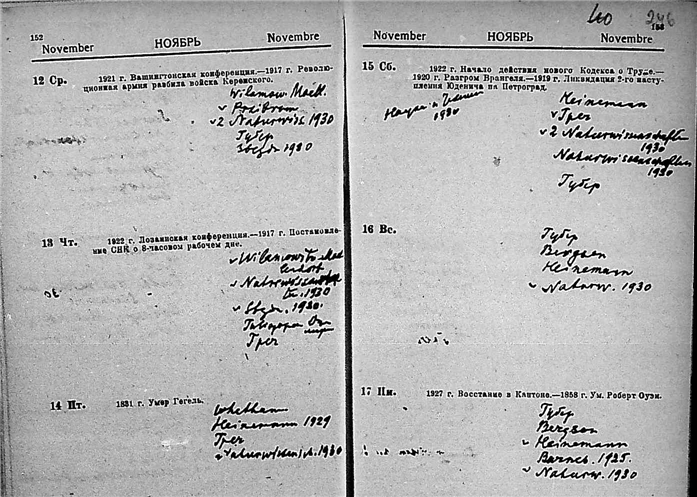 152
November НОЯБРЬ Novembre
12 Ср. 1921 г. Вашингтонская конференция.—1917 г. Револю-
ционная армия разбила войска Керенского.
Wilamow. Moell.
Naturwiss 1930
Губер
Звезда 1930
13 Чт. 1922 г. Лозаннская конференция.—1917 г. Постановле-
ние СНК о 8-часовом рабочем дне.
Wilamowitz-Moel
lendorf
1930
1930.
Грез
14 Пт. 1831 г. Умер Гегель.
Whetham
Heinemann 1929
Грез
Naturwissensch. 1930
60 246
153
November НОЯБРЬ Novembre
15 Сб. 1922 г. Начало действия нового Кодекса о Труде.—
1920 г. Разгром Врангеля.—1919 г. Ликвидация 2-го насту-
пления Юденича на Петроград.
Наука и
1930
Heinemann
Грез
2 Naturwissenschaften
1930
Naturwissenschaften
1930
Губер
16 Вс.
Губер
Bergson
Heinemann
Naturw. 1930
17 Пн. 1927 г. Восстание в Кантоне.—1858 г. Ум. Роберт Оуэн.
Губер
Bergson
Heinemann
Barnes. 1925.
Naturw. 1930